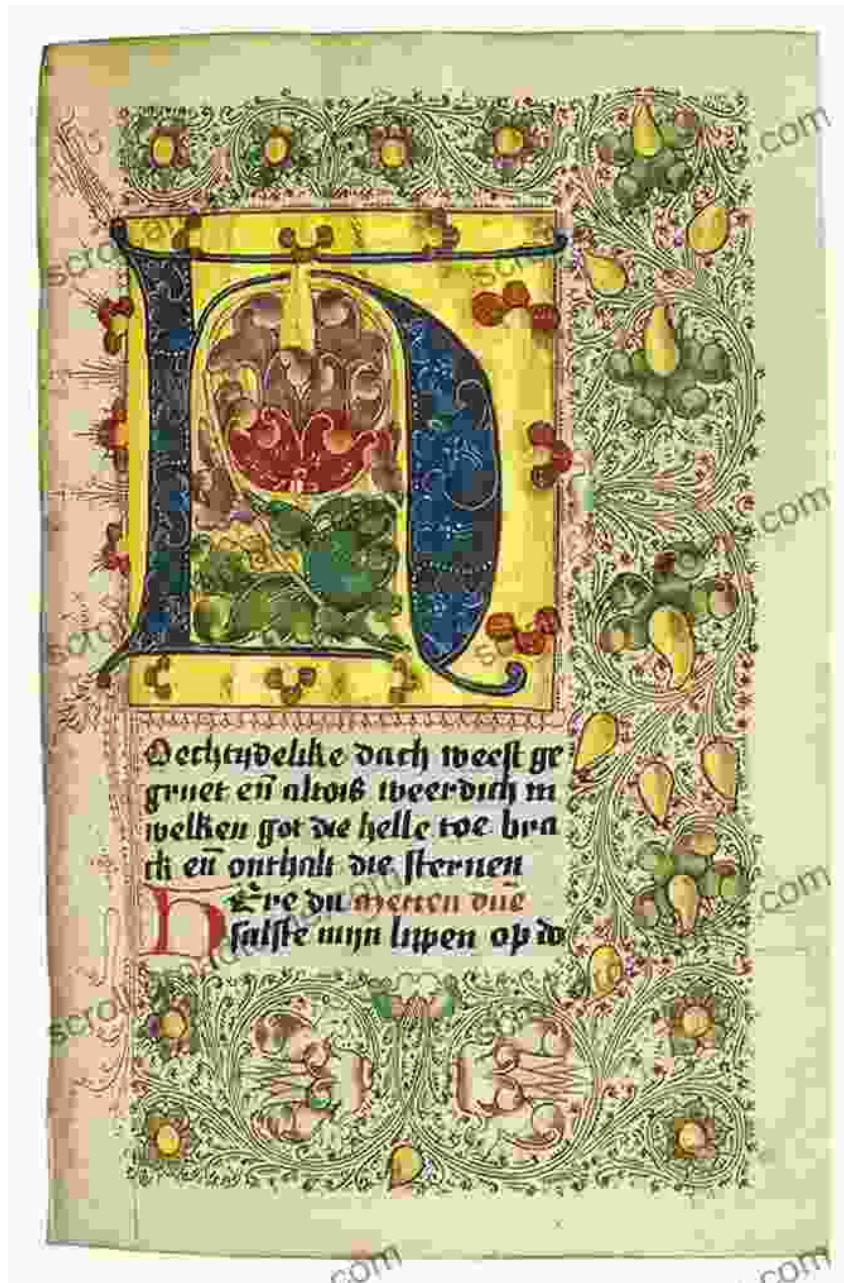 HOechtydelike dach weest ge
gruet en̄ altois weerdich in
welken got die helle toe bra
ch en̄ onthalt die sternen
HEre du metten
salste mijn lippen op do
.com
.com
.com
.com